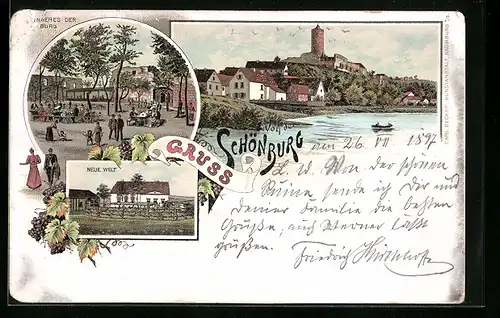 INNERES DER
BURG
GRUSS
VON DER
SCHÖNBURG
NEUE WELT
am 26. VII 1897
L. W. Von der schönen
Ruine sende ich Dir und
Deiner Familie die besten
Grüße, auch Werner läßt
grüßen.
Friedrich